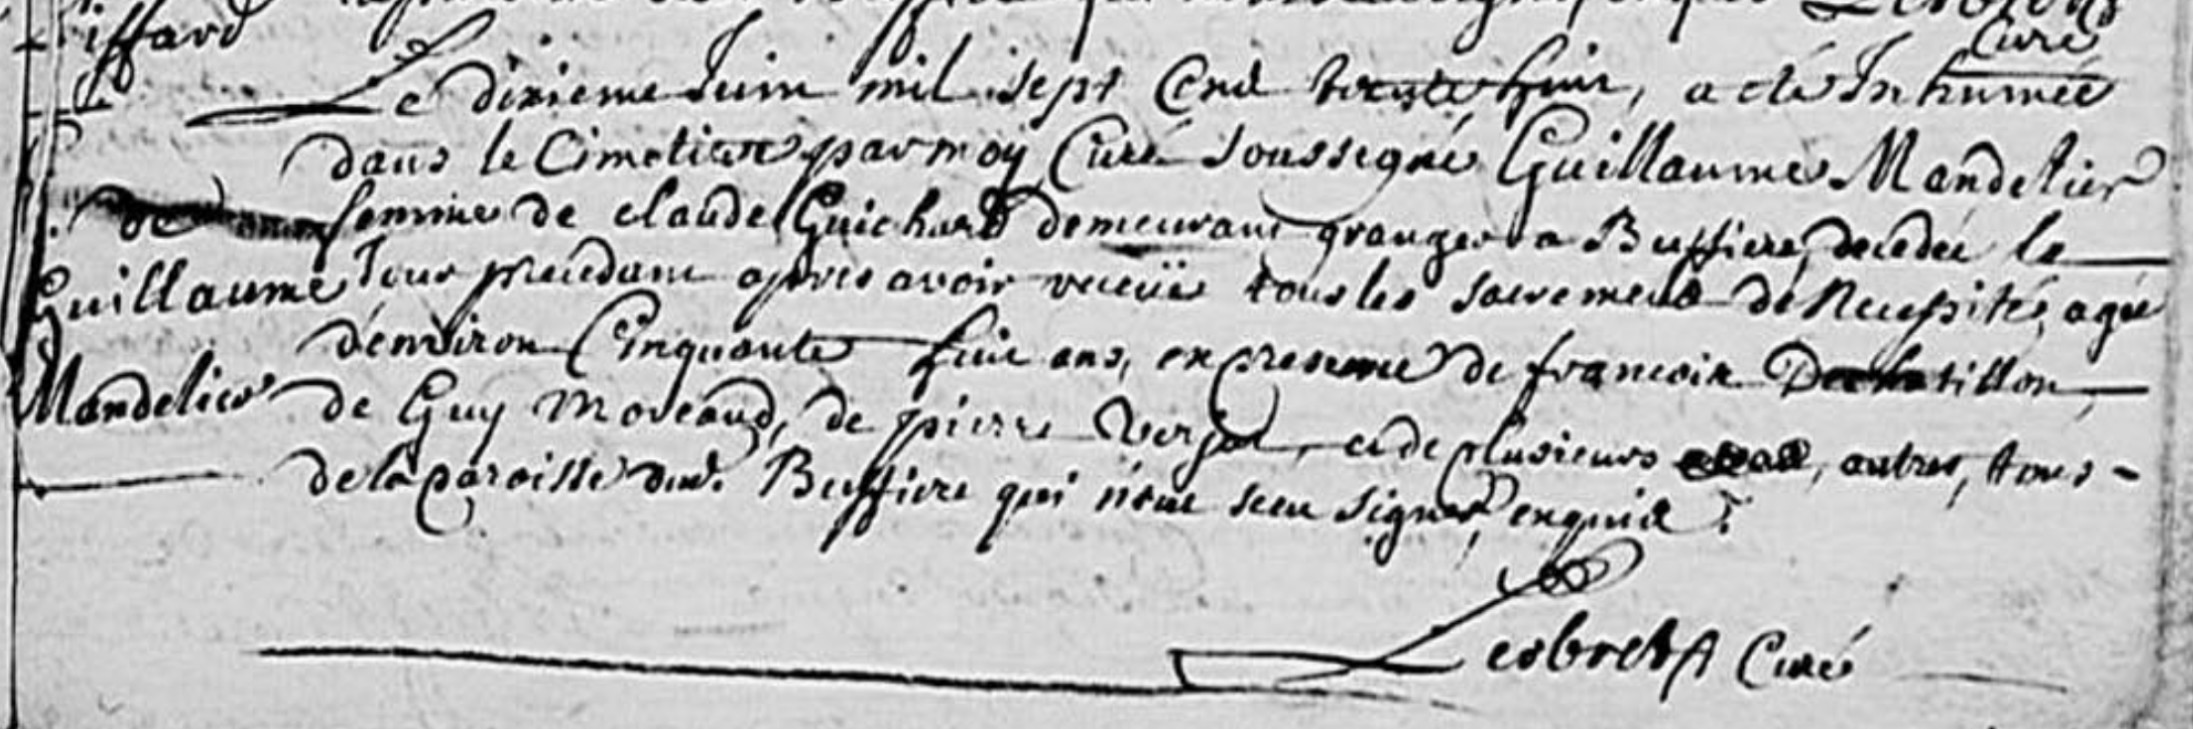 iffard
Curé
Le dixieme Juin mil sept Cend trente huit, a été Inhumée
dans le Cimetiere par moy Curé soussigné Guillaume Mandelier
femme de claude Guichard demeurant granger a Bussiere, decedée le
Jour precedant apres avoir receüe tous les sacrements de Necessités, agée
d'environ Cinquante huit ans, en presence de francois tillon,
de Guy Moreaud, de pierre et de plusieurs autres, tous
de la paroisse dud. Bussiere qui n'ont sceu signer, enquis
Lesbros Curé
de
Guillaume
Mandelier